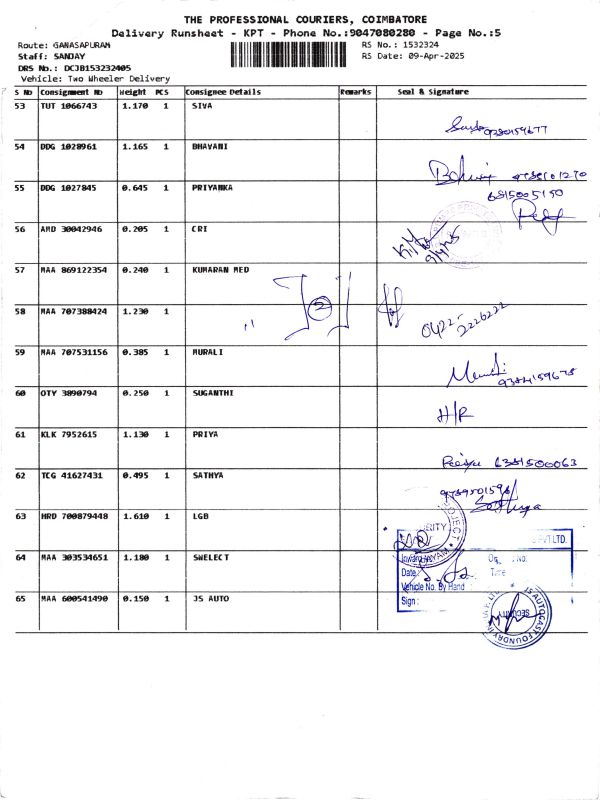 THE PROFESSIONAL COURIERS, COIMBATORE
Delivery Runsheet - KPT - Phone No.:9047080280 - Page No.:5
Route: GANASAPURAM RS No.: 1532324
Staff: SANJAY RS Date: 09-Apr-2025
DRS No.: DCJB153232405
Vehicle: Two Wheeler Delivery
S NO Consignment NO Weight PCS Consignee Details Remarks Seal & Signature
53 TUT 1066743 1.170 1 SIVA
54 DDG 1028961 1.165 1 BHAVANI
55 DDG 1027845 0.645 1 PRIYANKA
6815005150
56 AMD 30042946 0.205 1 CRI
9/4/25
57 MAA 869122354 0.240 1 KUMARAN MED
2
58 MAA 707388424 1.230 1 "
0422-
2226222
59 MAA 707531156 0.385 1 MURALI
60 OTY 3890794 0.250 1 SUGANTHI
H/R
61 KLK 7952615 1.130 1 PRIYA
Priya 6381500063
62 TCG 41627431 0.495 1 SATHYA
Sathya
63 HRD 700879448 1.610 1 LGB
PROJECT
PVT LTD.
64 MAA 303534651 1.180 1 SWELECT
Inward No.
Date:
Time
Vehicle No. By Hand
Sign:
65 MAA 600541490 0.150 1 JS AUTO
JS AUTOCAST FOUNDRY
SECURITY